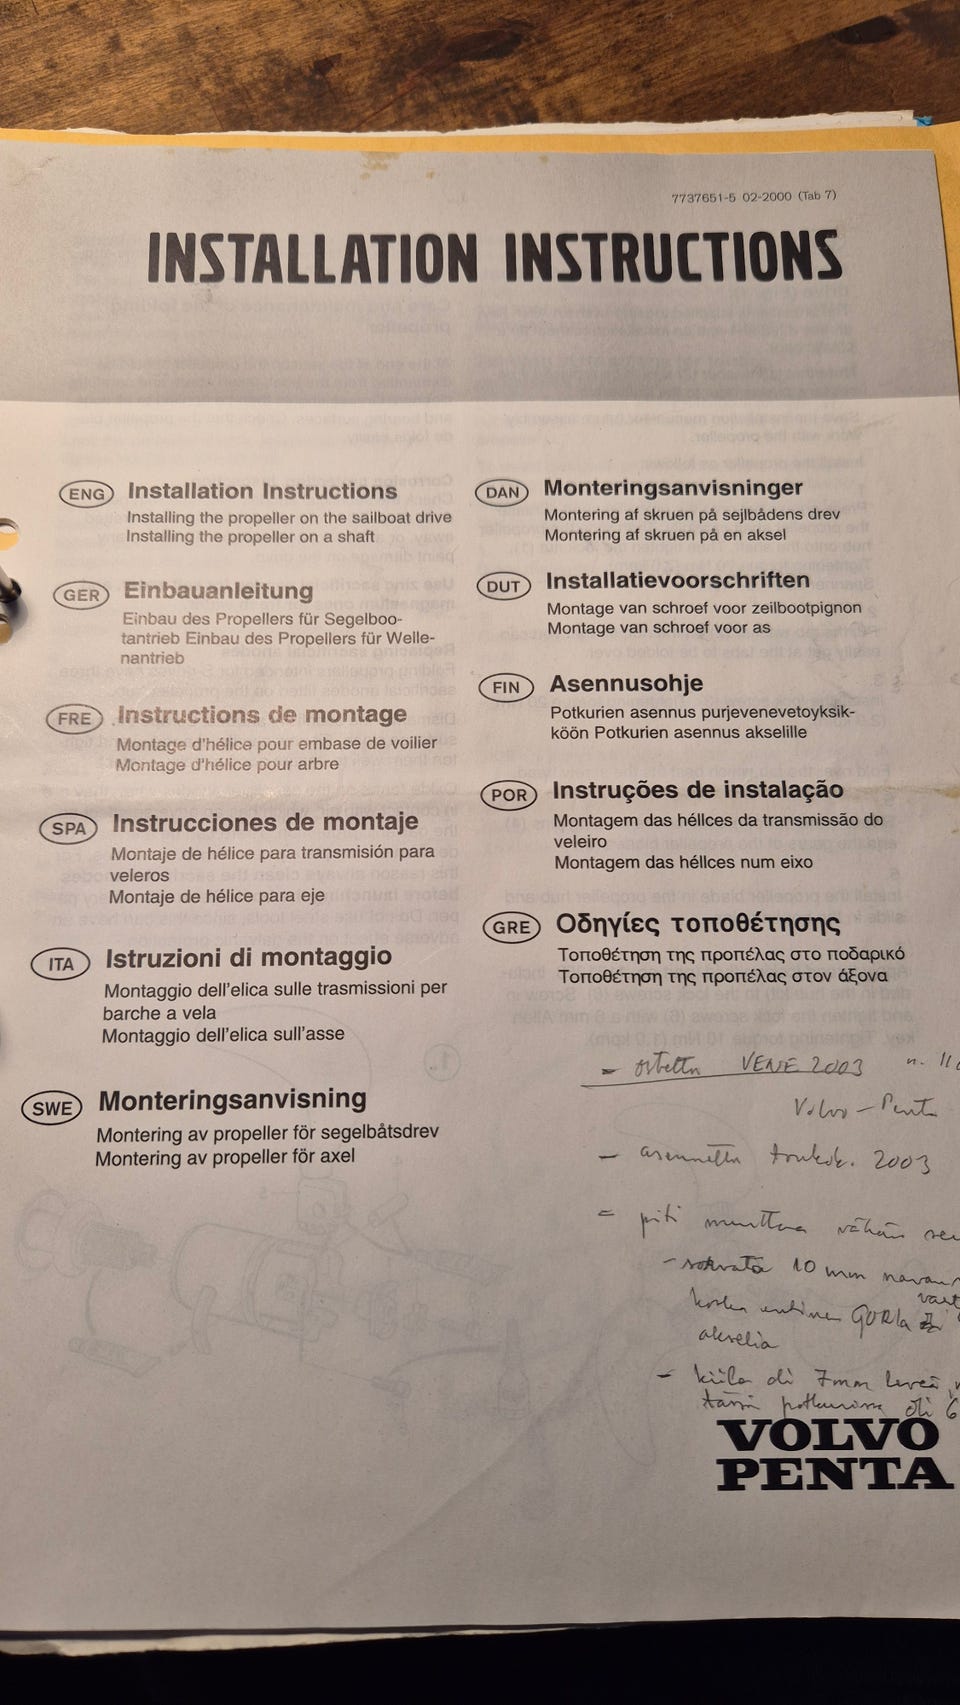 7737651-5 02-2000 (Tab 7)
INSTALLATION INSTRUCTIONS
ENG Installation Instructions
Installing the propeller on the sailboat drive
Installing the propeller on a shaft
GER Einbauanleitung
Einbau des Propellers für Segelboo-
tantrieb Einbau des Propellers für Welle-
nantrieb
FRE Instructions de montage
Montage d'hélice pour embase de voilier
Montage d'hélice pour arbre
SPA Instrucciones de montaje
Montaje de hélice para transmisión para
veleros
Montaje de hélice para eje
ITA Istruzioni di montaggio
Montaggio dell'elica sulle trasmissioni per
barche a vela
Montaggio dell'elica sull'asse
SWE Monteringsanvisning
Montering av propeller för segelbåtsdrev
Montering av propeller för axel
DAN Monteringsanvisninger
Montering af skruen på sejlbådens drev
Montering af skruen på en aksel
DUT Installatievoorschriften
Montage van schroef voor zeilbootpignon
Montage van schroef voor as
FIN Asennusohje
Potkurien asennus purjevenevetoyksik-
köön Potkurien asennus akselille
POR Instruções de instalação
Montagem das héllces da transmissão do
veleiro
Montagem das héllces num eixo
GRE Οδηγίες τοποθέτησης
Τοποθέτηση της προπέλας στο ποδαρικό
Τοποθέτηση της προπέλας στον άξονα
- ostettu VENE 2003
Volvo-Penta
- asennettu toukok. 2003
= piti muuttaa vähän
- sorvata 10 mm
koska entinen GORI
akselia
- kiila oli 7mm leveä
tässä potkurissa oli 6
VOLVO
PENTA